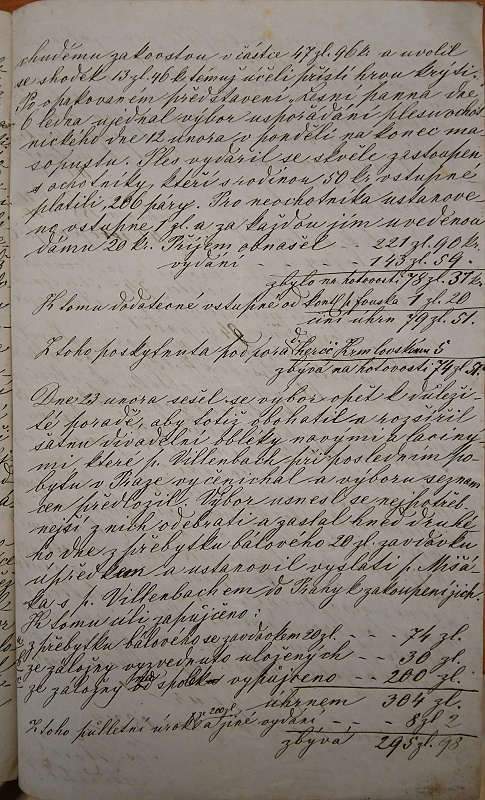 chudému za koostou v částce 47 zl. 96 kr. a uvolil
se shodek 13 zl. 46 k. temuž účeli příští hrou krýti.
Po opakovaném představení „Lesní panna“ dne
6 ledna ujednal výbor uspořádání plesu ochot
nického dne 12 února v pondělí na konec ma-
sopustu. Ples vydařil se skvěle zastoupen
s ochotníky, kteří s rodinou 50 kr. vstupné
platili, 206 páry. Pro neochotníka ustanove-
no vstupné 1 zl. a za každou jím uvedenou
dámu 20 k. Příjem obnášel - - 221 zl. 90 kr.
vydání - - - 143 zl. 59 -
zbylo na hotovosti 78 zl. 31 kr.
K tomu dodatečné vstupné od 1 zl. 20
činí úhrn 79 zl. 51.
Z toho poskytnuta podpora herci Krmlovskému 5
zbývá na hotovosti 74 zl. 51.
Dne 23 února sešel se výbor opět k důleži-
té poradě, aby totiž obohatil a rozšířil
šatnu divadelní obleky novými a laciný-
mi které p. Villenbach při posledním po-
bytu v Praze vycenichal a výboru seznam
cen předložil. Výbor usnesl se nejpotřeb
nější z nich odebrati a zaslal hned druhé
ho dne z přebytku bálového 20 zl. závdavku
a ustanovil vyslati p. Mišá-
ka s p. Villenbachem do Prahy k zakoupení jich.
K tomu cíli zapůjčeno:
z přebytku bálového se závdavkem 20 zl. - - 74 zl.
ze záložny vyzvednuto uložených - - 30 zl.
ze záložny vypůjčeno - - 200 zl.
úhrnem 304 zl.
Z toho půlletní úrok ze 200 zl. a jiné vydání - - 8 zl 2
zbývá 295 zl. 98